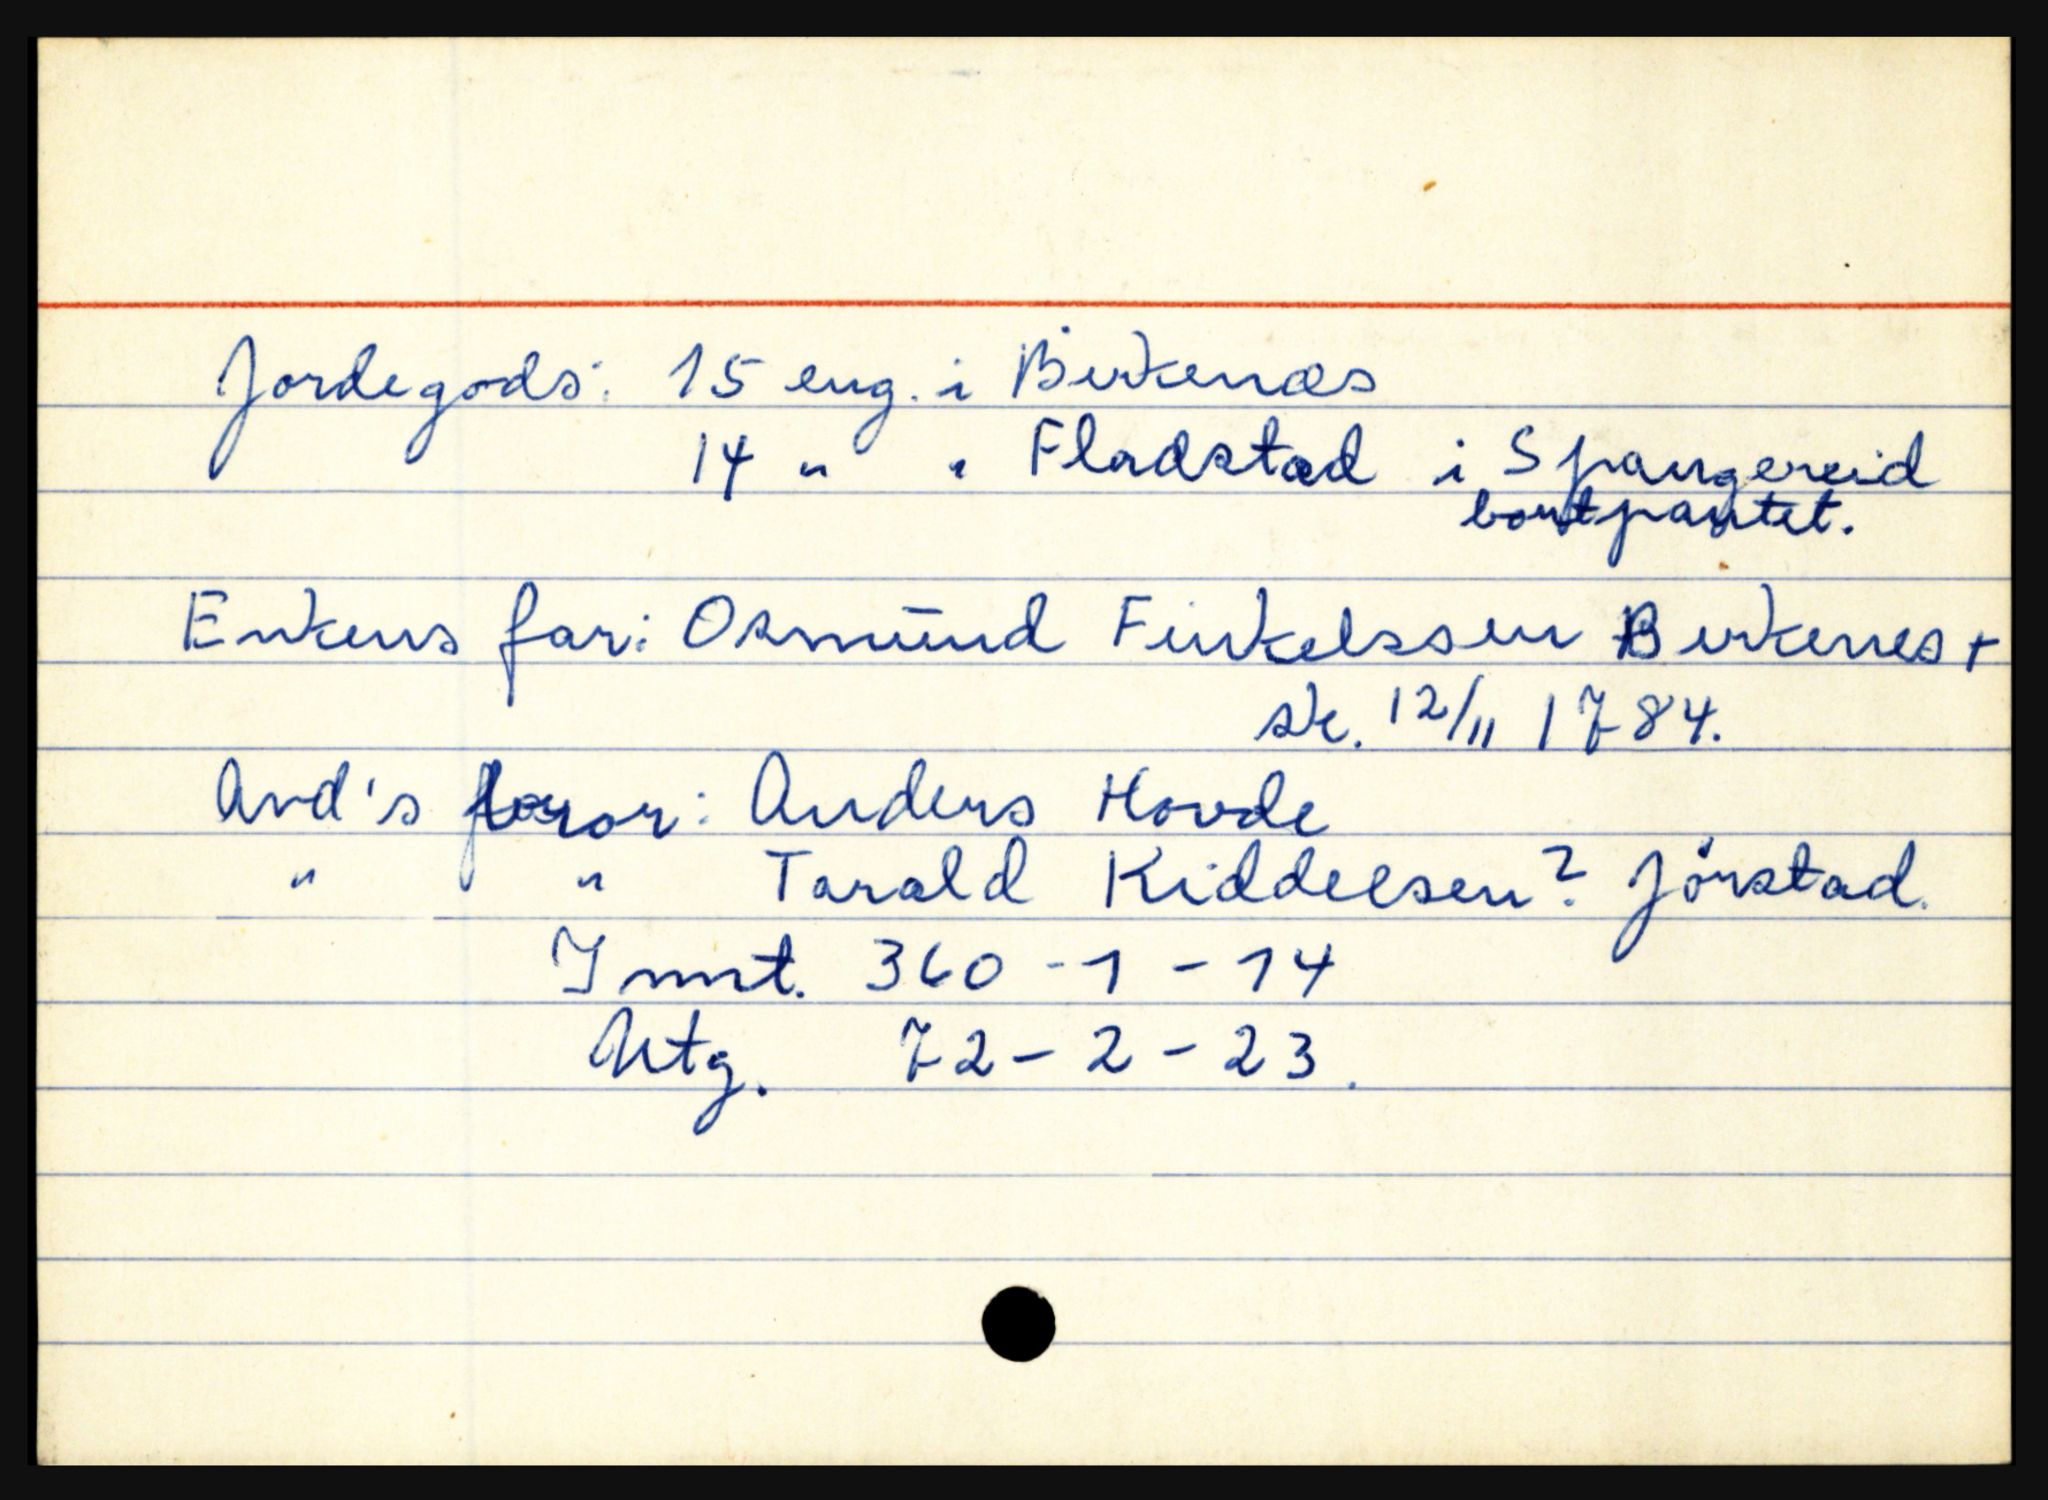 Jordegods: 15 eng. i Birkenæs
14 " " Fladstad i Spangereid
bortpantet.
Enkens far: Osmund Finkelssen Birkenes +
sk. 12/11 1784.
Avd's moror: Anders Hovde
" " Tarald Kiddelsen? Jörstad.
Innt. 360 - 1 - 14
Utg. 72 - 2 - 23.